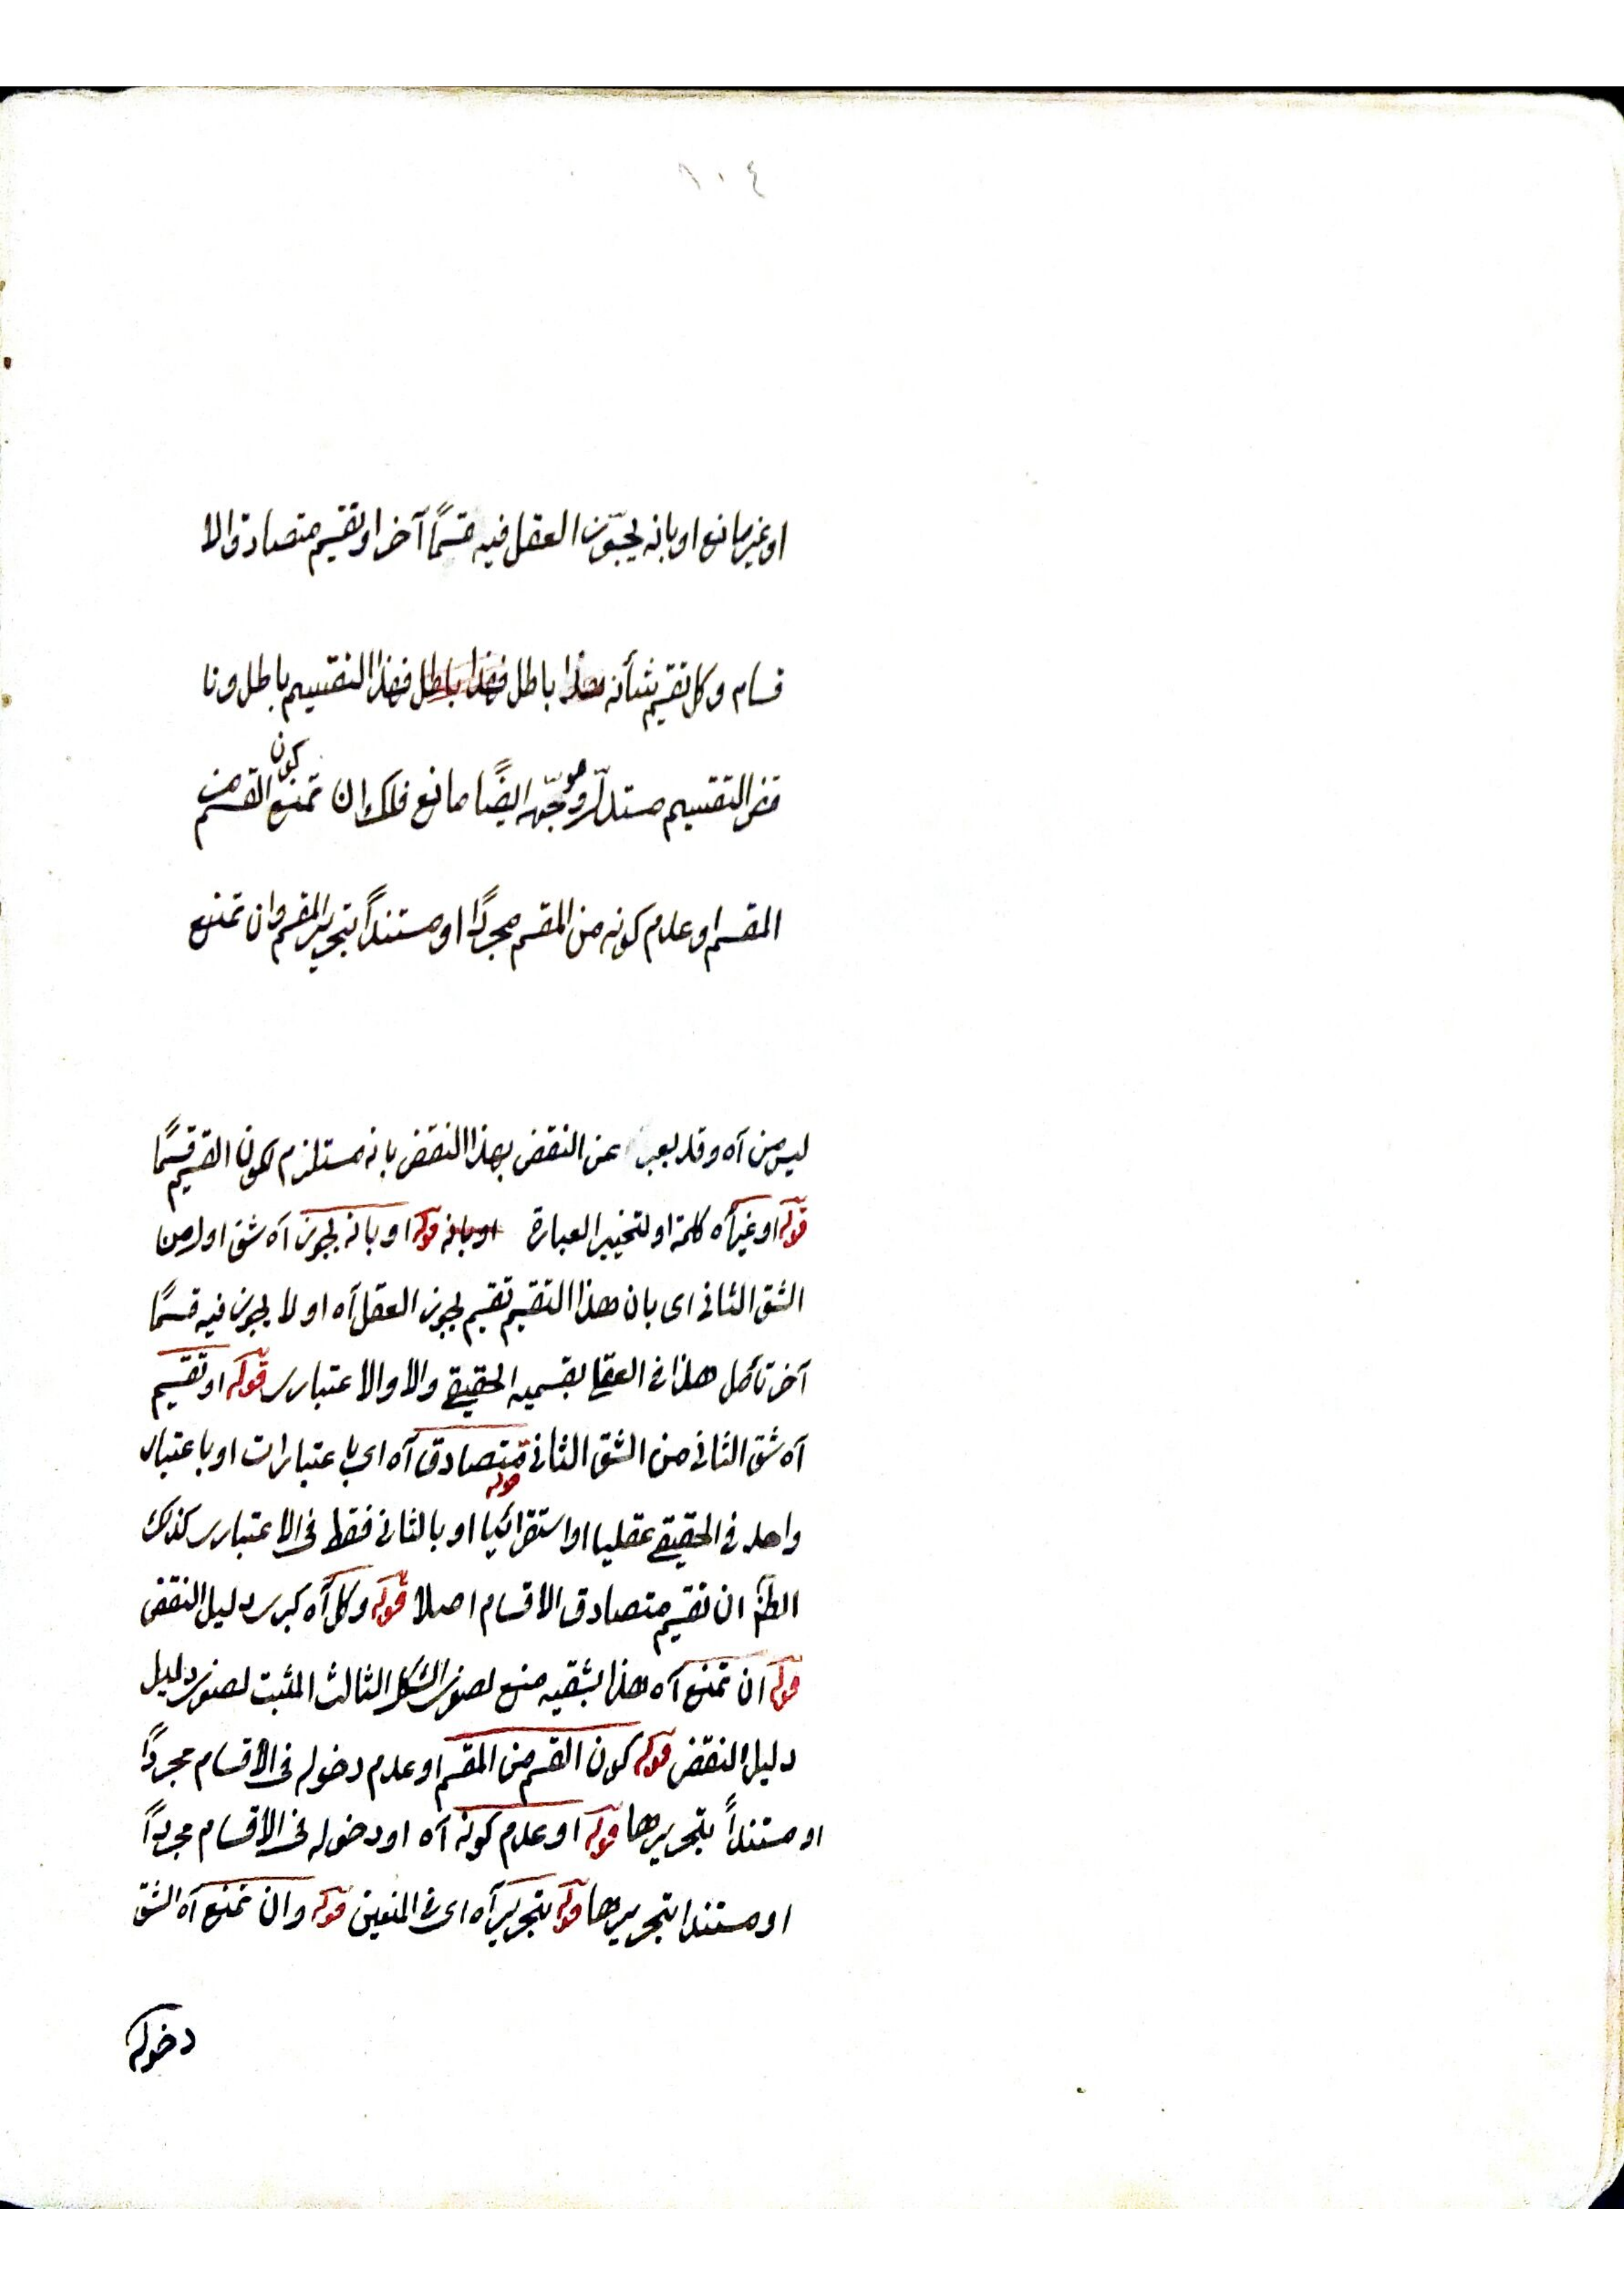 ١٠٤
او غير مانع او بانه يجوّز العقل فيه قسمًا آخر او تقسيم متصادق الا
قسام وكل تقسيم شأنه هذا باطل فهذا باطل فهذا التقسيم باطل ونا
قض التقسيم مستدلّ وموجّهه ايضًا مانع فلك ان تمنع كون القسم من
المقسم او عدم كونه من المقسم مجردًا او مستندًا بتحرير المقسم وان تمنع
ليس من آه وقد يعبر عن النقض بهذا النقض بانه مستلزم لكون القسيم قسمًا
قوله او غير آه كلمة او لتخيير العبارة او بانه قوله او بانه يجوز آه شق اول من
الشق الثانى اى بان هذا التقسيم تقسيم يجوز العقل آه او لا يجوز فيه قسمًا
آخر تأمل هذا فى العقلى بقسميه الحقيقى والا والاعتبارى قوله او تقسيم
آه شق الثانى من الشق الثانى قوله متصادق آه اى باعتبارات او باعتبار
واحد فى الحقيقى عقليا او استقرائيا او بالثانى فقط فى الاعتبارى كذلك
الظ ان تقسيم متصادق الاقسام اصلا قوله وكل آه كبرى دليل النقض
قوله ان تمنع آه هذا بشقيه منع لصغرى الشكل الثالث المثبت لصغرى دليل
دليل النقض قوله كون القسم من المقسم او عدم دخوله فى الأقسام مجردًا
او مستندًا بتحريرها قوله او عدم كونه آه او دخوله فى الأقسام مجردًا
او مستندا بتحريرها قوله بتحرير آه اى فى المنعين قوله وان تمنع آه الشق
دخوله